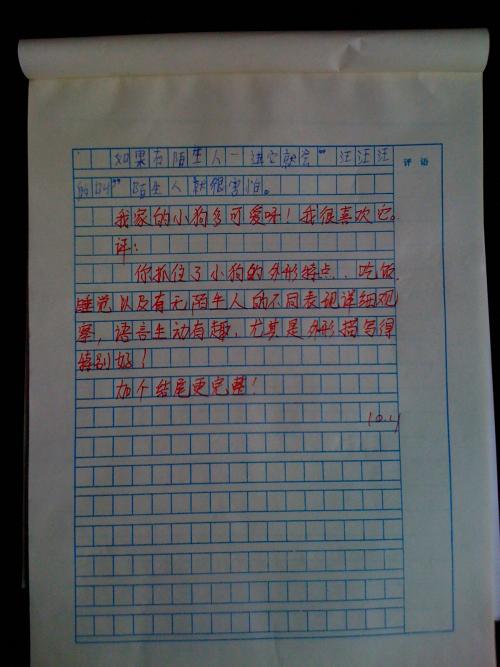 如果有陌生人一进它就会"汪汪汪
的叫"陌生人就很害怕。
评语
我家的小狗多可爱呀!我很喜欢它。
评:
你抓住了小狗的外形特点、吃饭、
睡觉以及有无陌生人的不同表现详细观
察,语言生动有趣,尤其是外形描写得
特别好!
加个结尾更完整!
10.11